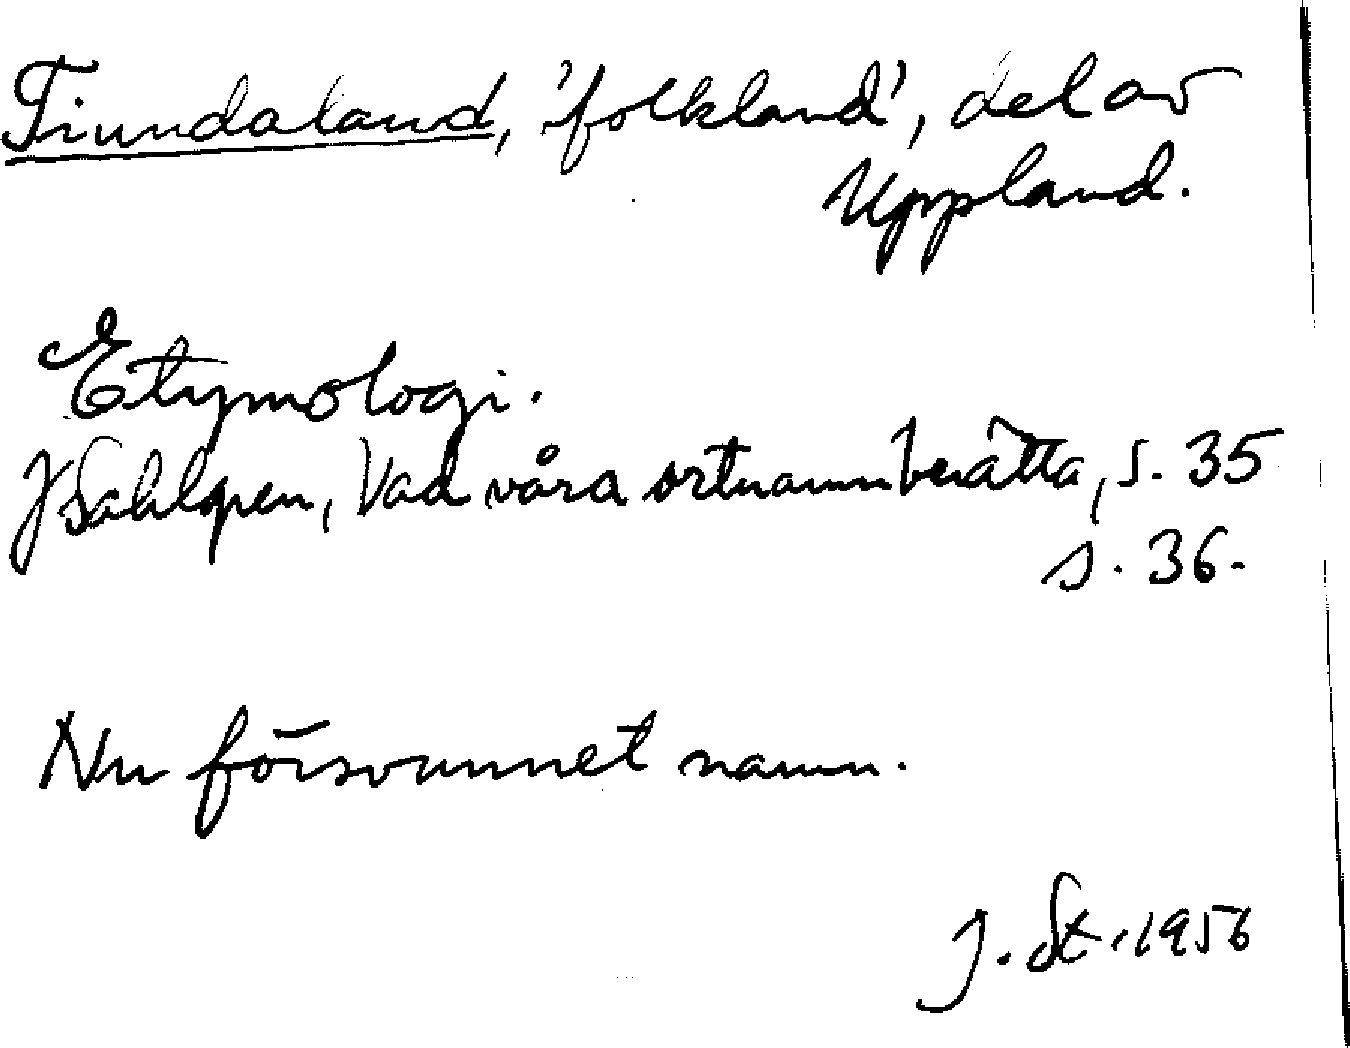 Tiundaland, 'folkland', del av
Uppland.
Etymologi.
J Sahlgren, Vad våra ortnamn berätta, s. 35
s. 36.
Nu försvunnet namn.
J. St. 1956